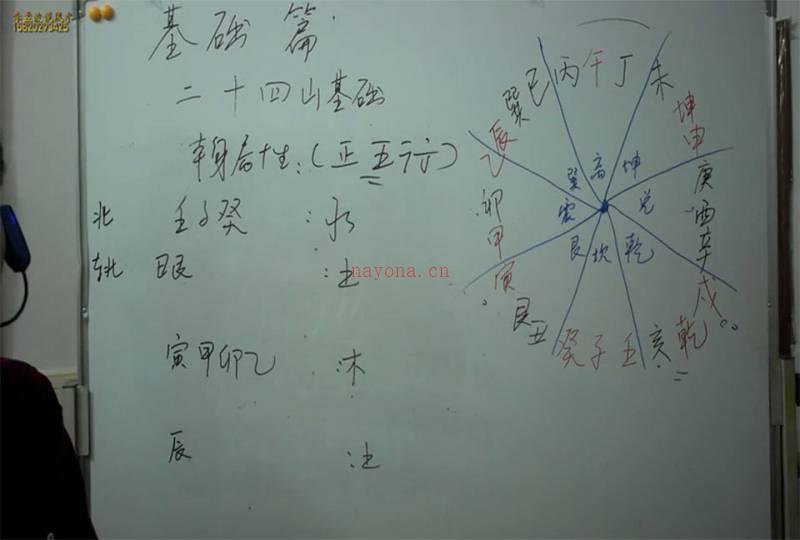 基础篇
二十四山基础
本身属性:(正五行)
北 壬子癸 :水
东北 丑艮 :土
寅甲卯乙 :木
辰 :土
巽巳丙午丁未坤申
庚酉辛戌乾亥壬子癸
丑艮寅甲卯乙辰
巽离坤
震兑
艮坎乾
nayona.cn